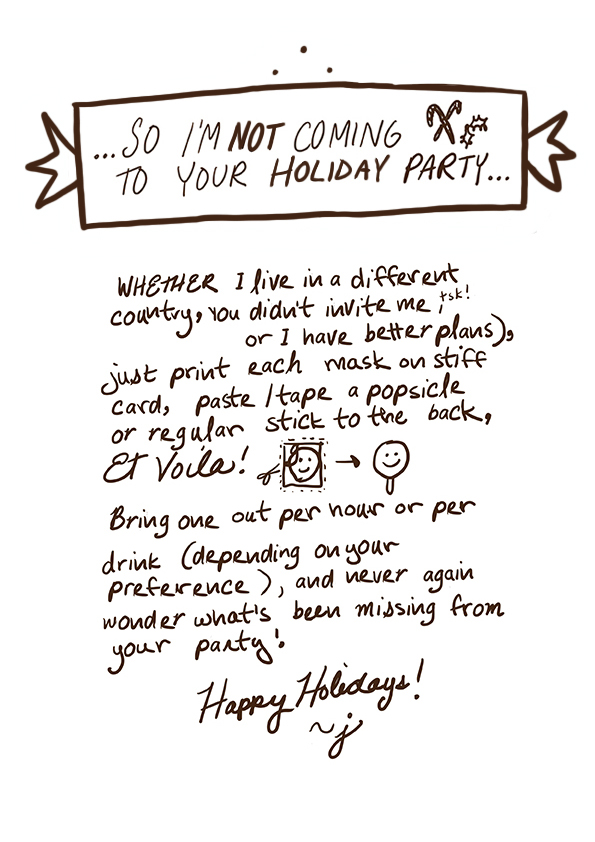 ...SO I'M NOT COMING
TO YOUR HOLIDAY PARTY...
WHETHER I live in a different
country, you didn't invite me, tsk!
or I have better plans),
just print each mask on stiff
card, paste/tape a popsicle
or regular stick to the back,
Et Voila!
Bring one out per hour or per
drink (depending on your
preference), and never again
wonder what's been missing from
your party!
Happy Holidays!
~j